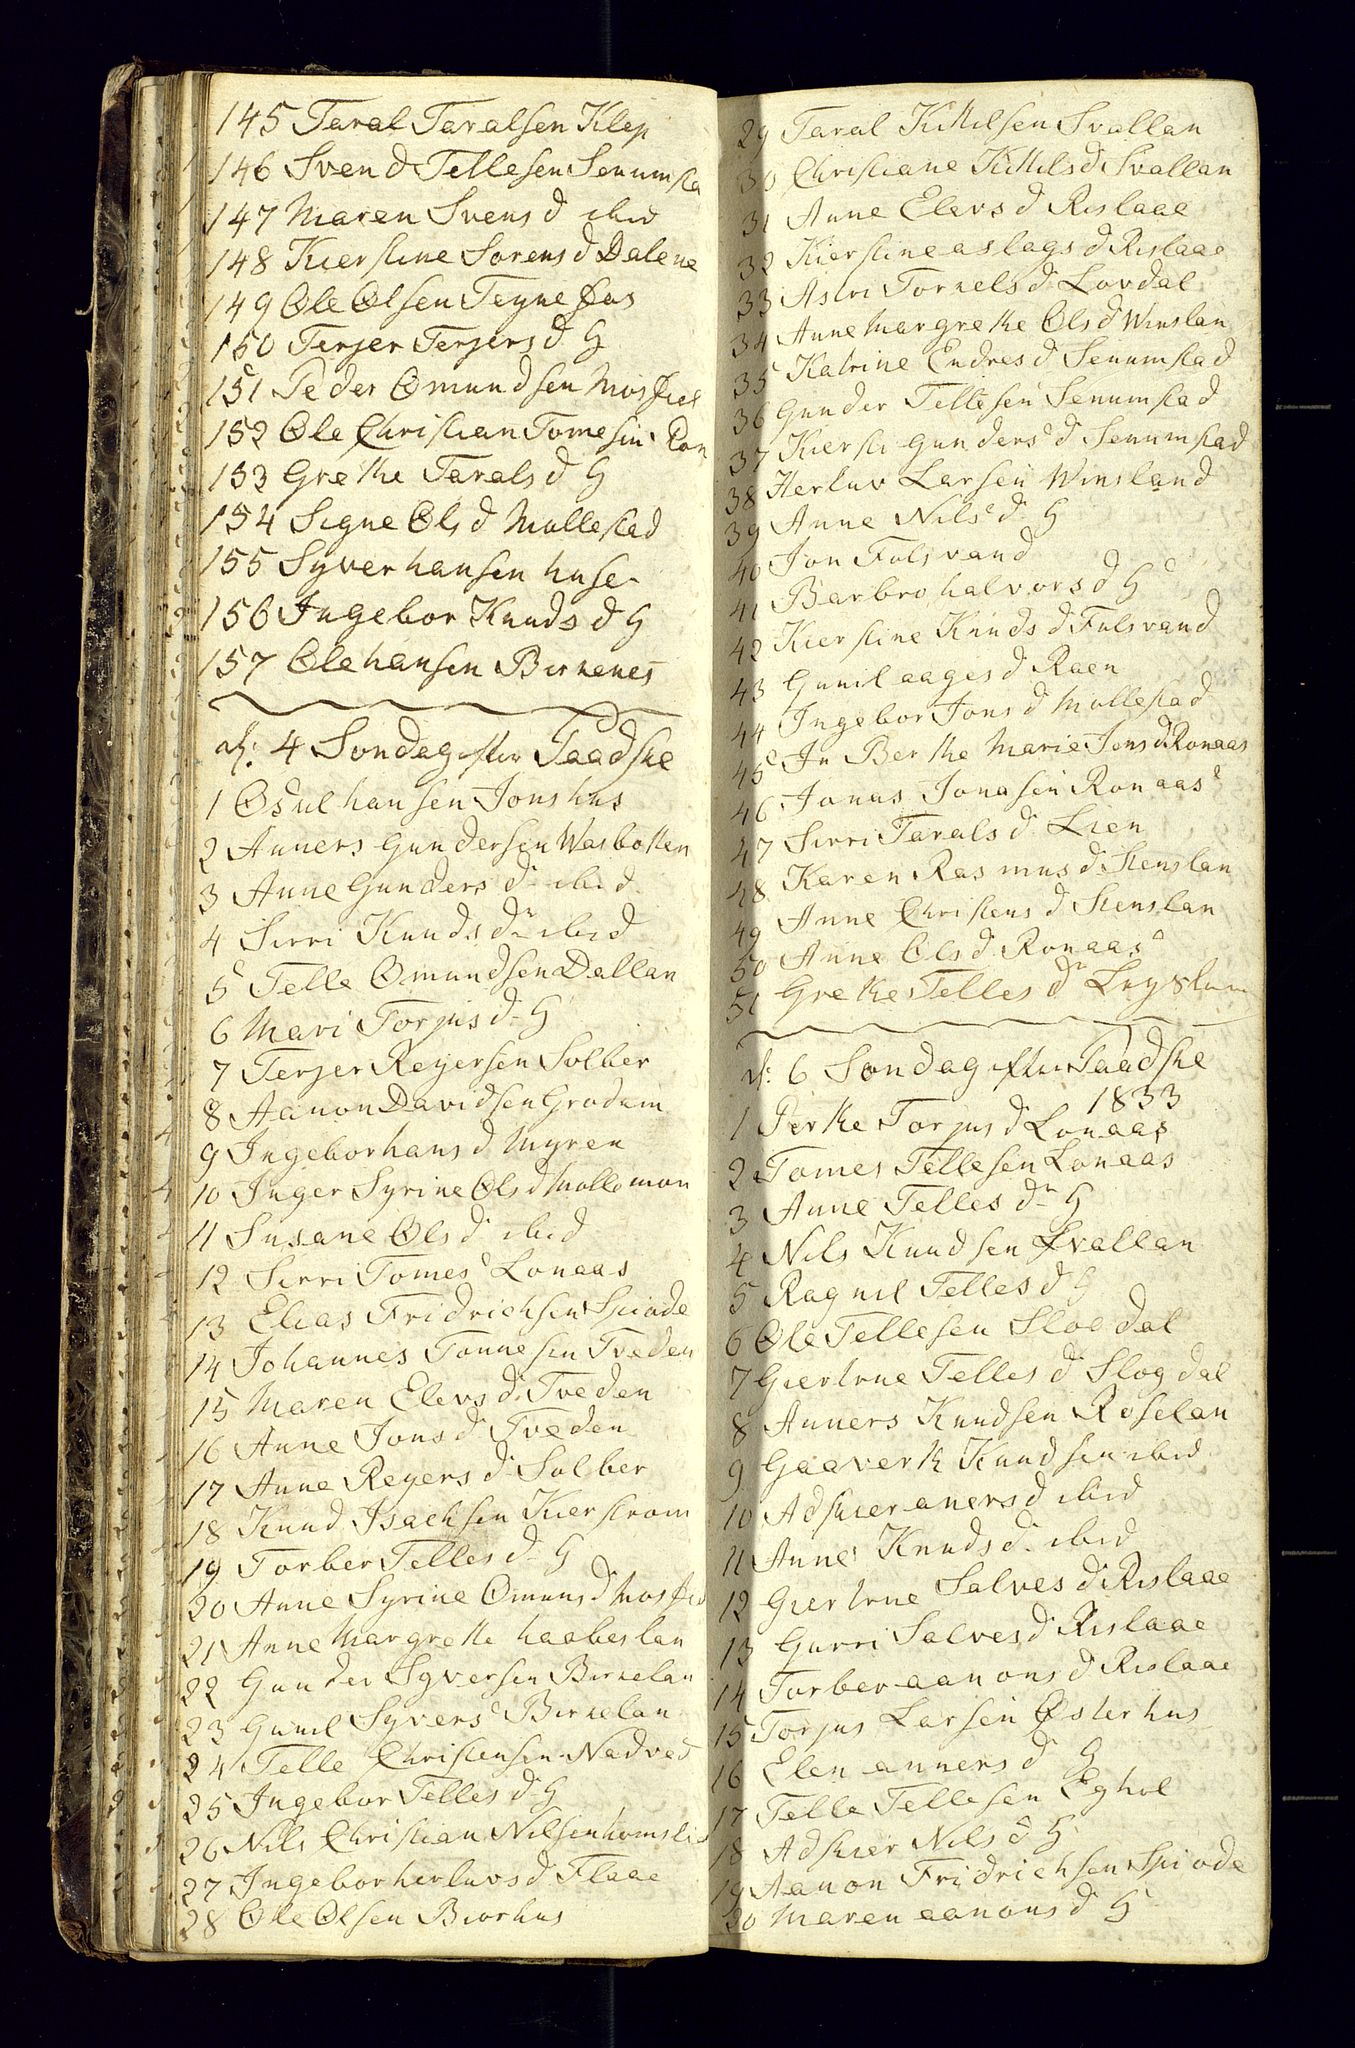 145 Taral Taralsen Klep
146 Svend Tellesen Senumsta
147 Maren Svens d ibid
148 Kierstine Sorens d Dalene
149 Ole Olsen Teyne fos
150 Terjer Terjers d H
151 Peder Omundsen Mosfiel
152 Ole Christian Tomesin Ron
153 Grethe Tarals d H
154 Signe Ols d Mollestad
155 Syver hansen huse
156 Ingebor Knuds d H
157 Ole hansen Birkenes
d: 4 Sondag efter Paadske
1 Osul hansen Jonshus
2 Anners Gundersen Wasbotten
3 Anne Gunders d ibid
4 Sirri Knuds d ibid
5 Telle Omundsen Dallan
6 Mari Torjus d H
7 Terjer Reyersen Solber
8 Aanon Davidsen Grodum
9 Ingebor hans d Myren
10 Inger Syrine Ols d Mollemon
11 Susane Ols d ibid
12 Sirri Tomes d Lonaas
13 Elias Fridrichsen Spiode
14 Johannes Tonnesin Tveden
15 Maren Elevs d Tveden
16 Anne Jons d Tveden
17 Anne Reyers d Solber
18 Knud Isachsen Kierstrom
19 Torber Telles d H
20 Anne Syrine Omuns d Mosfiel
21 Anne Margrethe haabeslan
22 Gunder Syversen Birkelan
23 Gunil Syvers d Birkelan
24 Telle Christensen Nadved
25 Ingebor Telles d H
26 Nils Christian Nilsen homslid
27 Ingebor herluvs d Flaae
28 Ole Olsen Biorhus
29 Taral Kittilsen Svallan
30 Christiane Kittils d Svallan
31 Anne Elevs d Rislaae
32 Kierstine aslags d Rislaae
33 Astri Torkels d Lovdal
34 Anne Margrethe Ols d Winslan
35 Katrine Endres d Senumstad
36 Gunder Tellesen Senumstad
37 Kiersti Gunders d Senumstad
38 Herluv Larsen Winsland
39 Anne Nils d H
40 Jon Fulsvand
41 Barbro halvors d H
42 Kierstine Knuds d Fulsvand
43 Gunil aages d Raen
44 Ingebor Jons d Mollestad
45 In Berthe Marie Jens d Ronaas
46 Jonas Jonasin Ronaas
47 Sirri Tarals d Lien
48 Karen Rasmus d Stenslan
49 Anne Christens d Stenslan
50 Anne Ols d Ronaas
51 Grethe Telles d
d: 6 Sondag efter Paadske
1833
1 Perthe Torjus d Lonaas
2 Tomes Tellesen Lonaas
3 Anne Telles d H
4 Nils Knudsen Svallan
5 Ragnil Telles d H
6 Ole Tellesen Slogdal
7 Giertrue Telles d Slogdal
8 Anners Knudsen Roselan
9 Gaaverth Knudsen ibid
10 Adskier aners d ibid
11 Anne Knuds d ibid
12 Giertrue Salves d Rislaae
13 Gurri Salves d Rislaae
14 Torber aanons d Rislaae
15 Torjus Larsen Osterhus
16 Elen anners d H
17 Telle Tellesen Eghol
18 Adskier Nils d H
19 Aanon Fridrichsen Spiode
20 Maren aanons d H